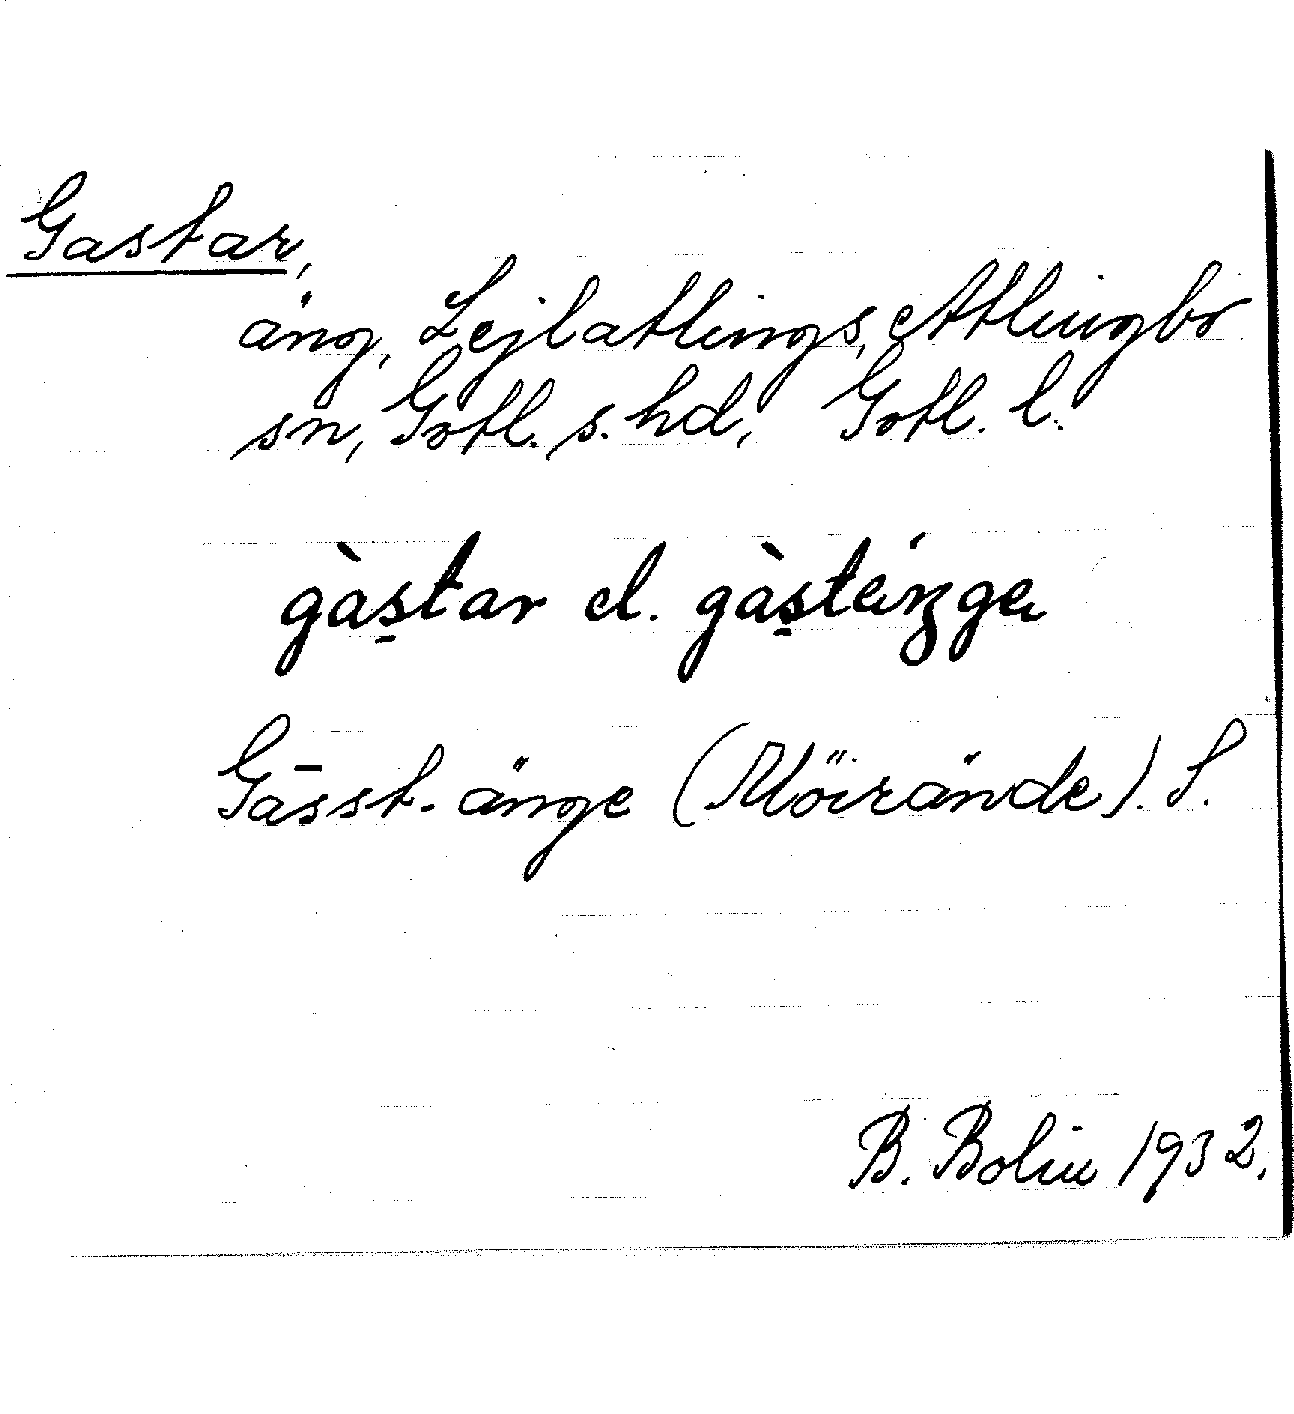 Gastar,
äng, Lejlatlings, Atlingbo
sn, Gotl. s. hd, Gotl. l.
gàs̠tar el.
Gāsst-änge (Möirände). S.
B. Bolin 1932.